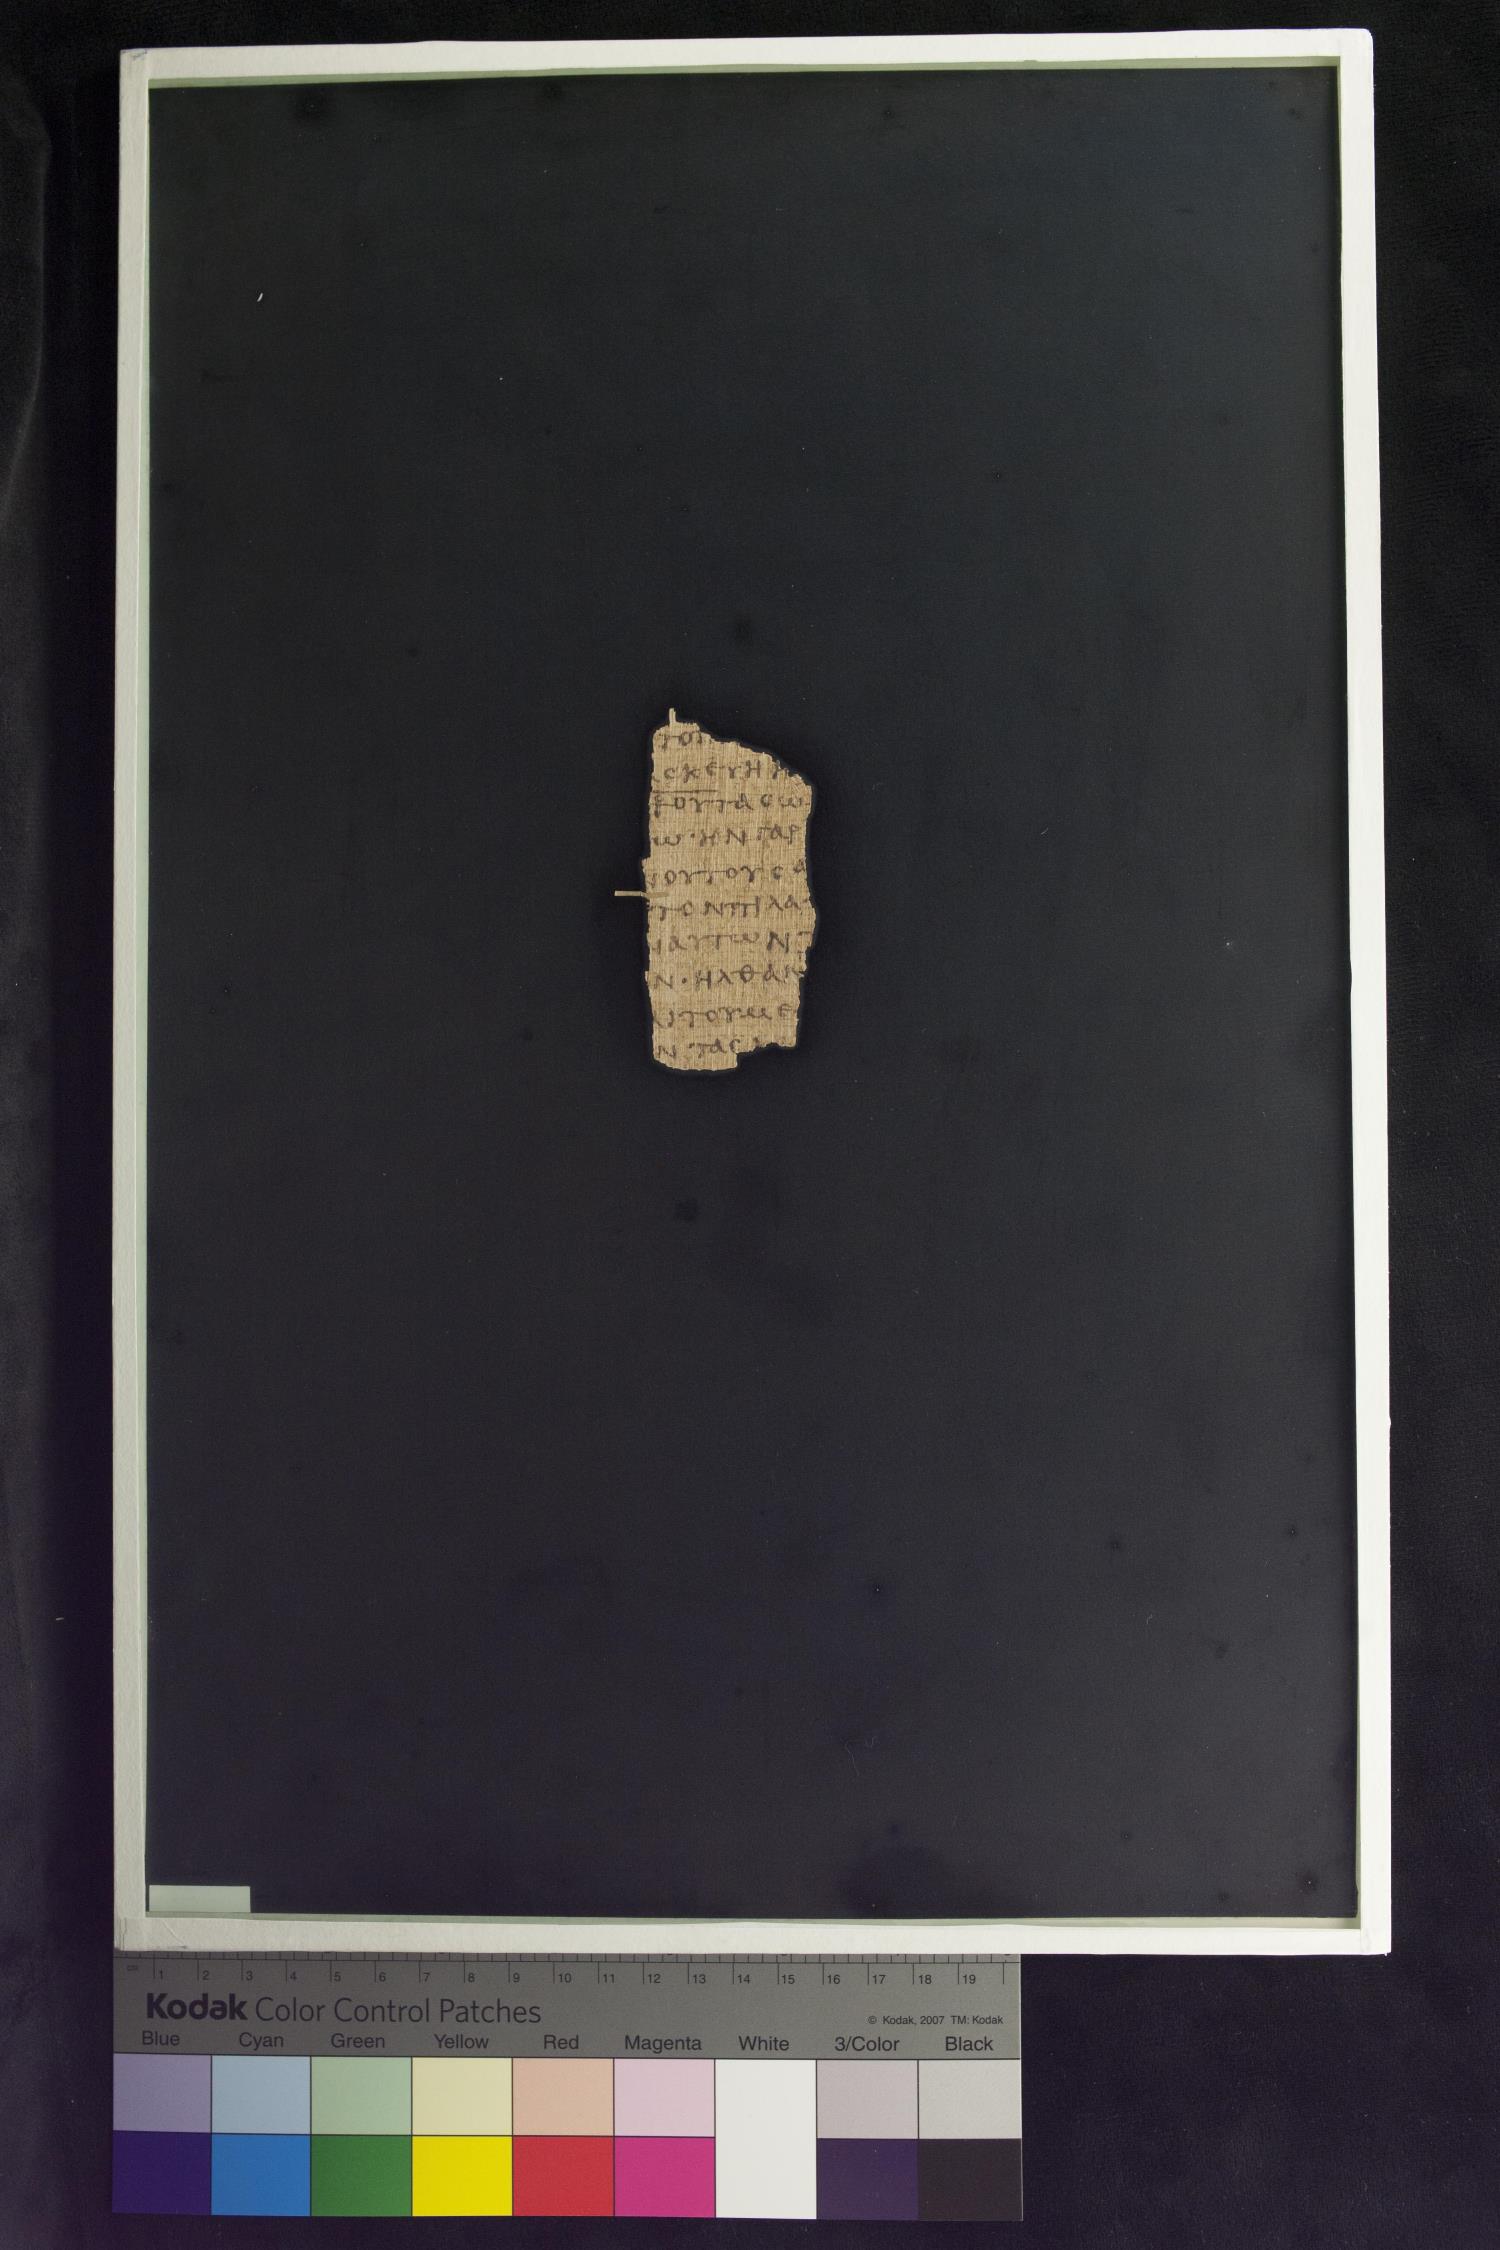 ΙΟΙ
ΣΚΕΥΗ Η
ΡΟΥΤΑΣΩ
Ω·ΗΝΓΑΡ
ΝΟΥΤΟΥΣΑ
ΤΟΝΠΙΛΑ
ΝΑΥΤΩΝΤ
Ν·ΗΛΘΑΝ
ΙΤΟΥΜΕ
Ν·ΤΑΣ
1 2 3 4 5 6 7 8 9 10 11 12 13 14 15 16 17 18 19
Kodak Color Control Patches
© Kodak, 2007 TM: Kodak
Blue Cyan Green Yellow Red Magenta White 3/Color Black